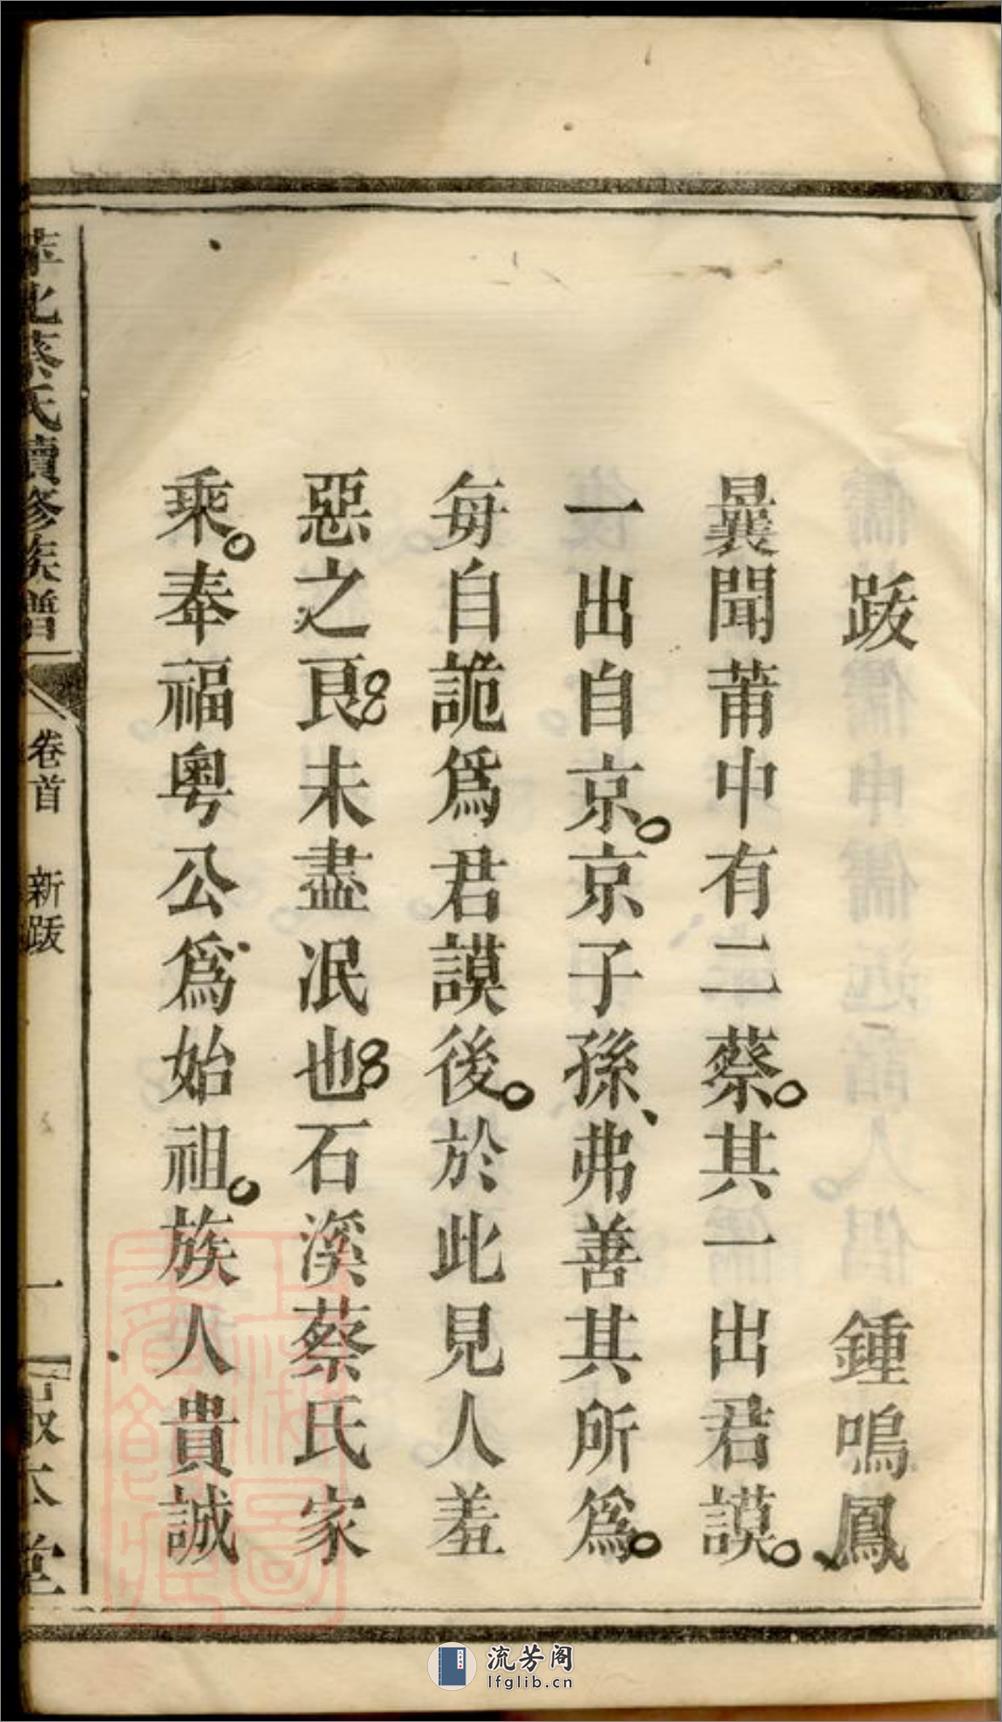 跋　鍾鳴鳳
曩聞莆中有二蔡。其一出君謨。
一出自京。京子孫、弗善其所爲。
每自詭爲君謨後。於此見人羞
惡之良。未盡泯也。石溪蔡氏家
乘。奉福粵公爲始祖。族人貴誠
萍北蔡氏續修族譜
卷首　新跋
一
敬本堂
流芳阁
lfglib.cn